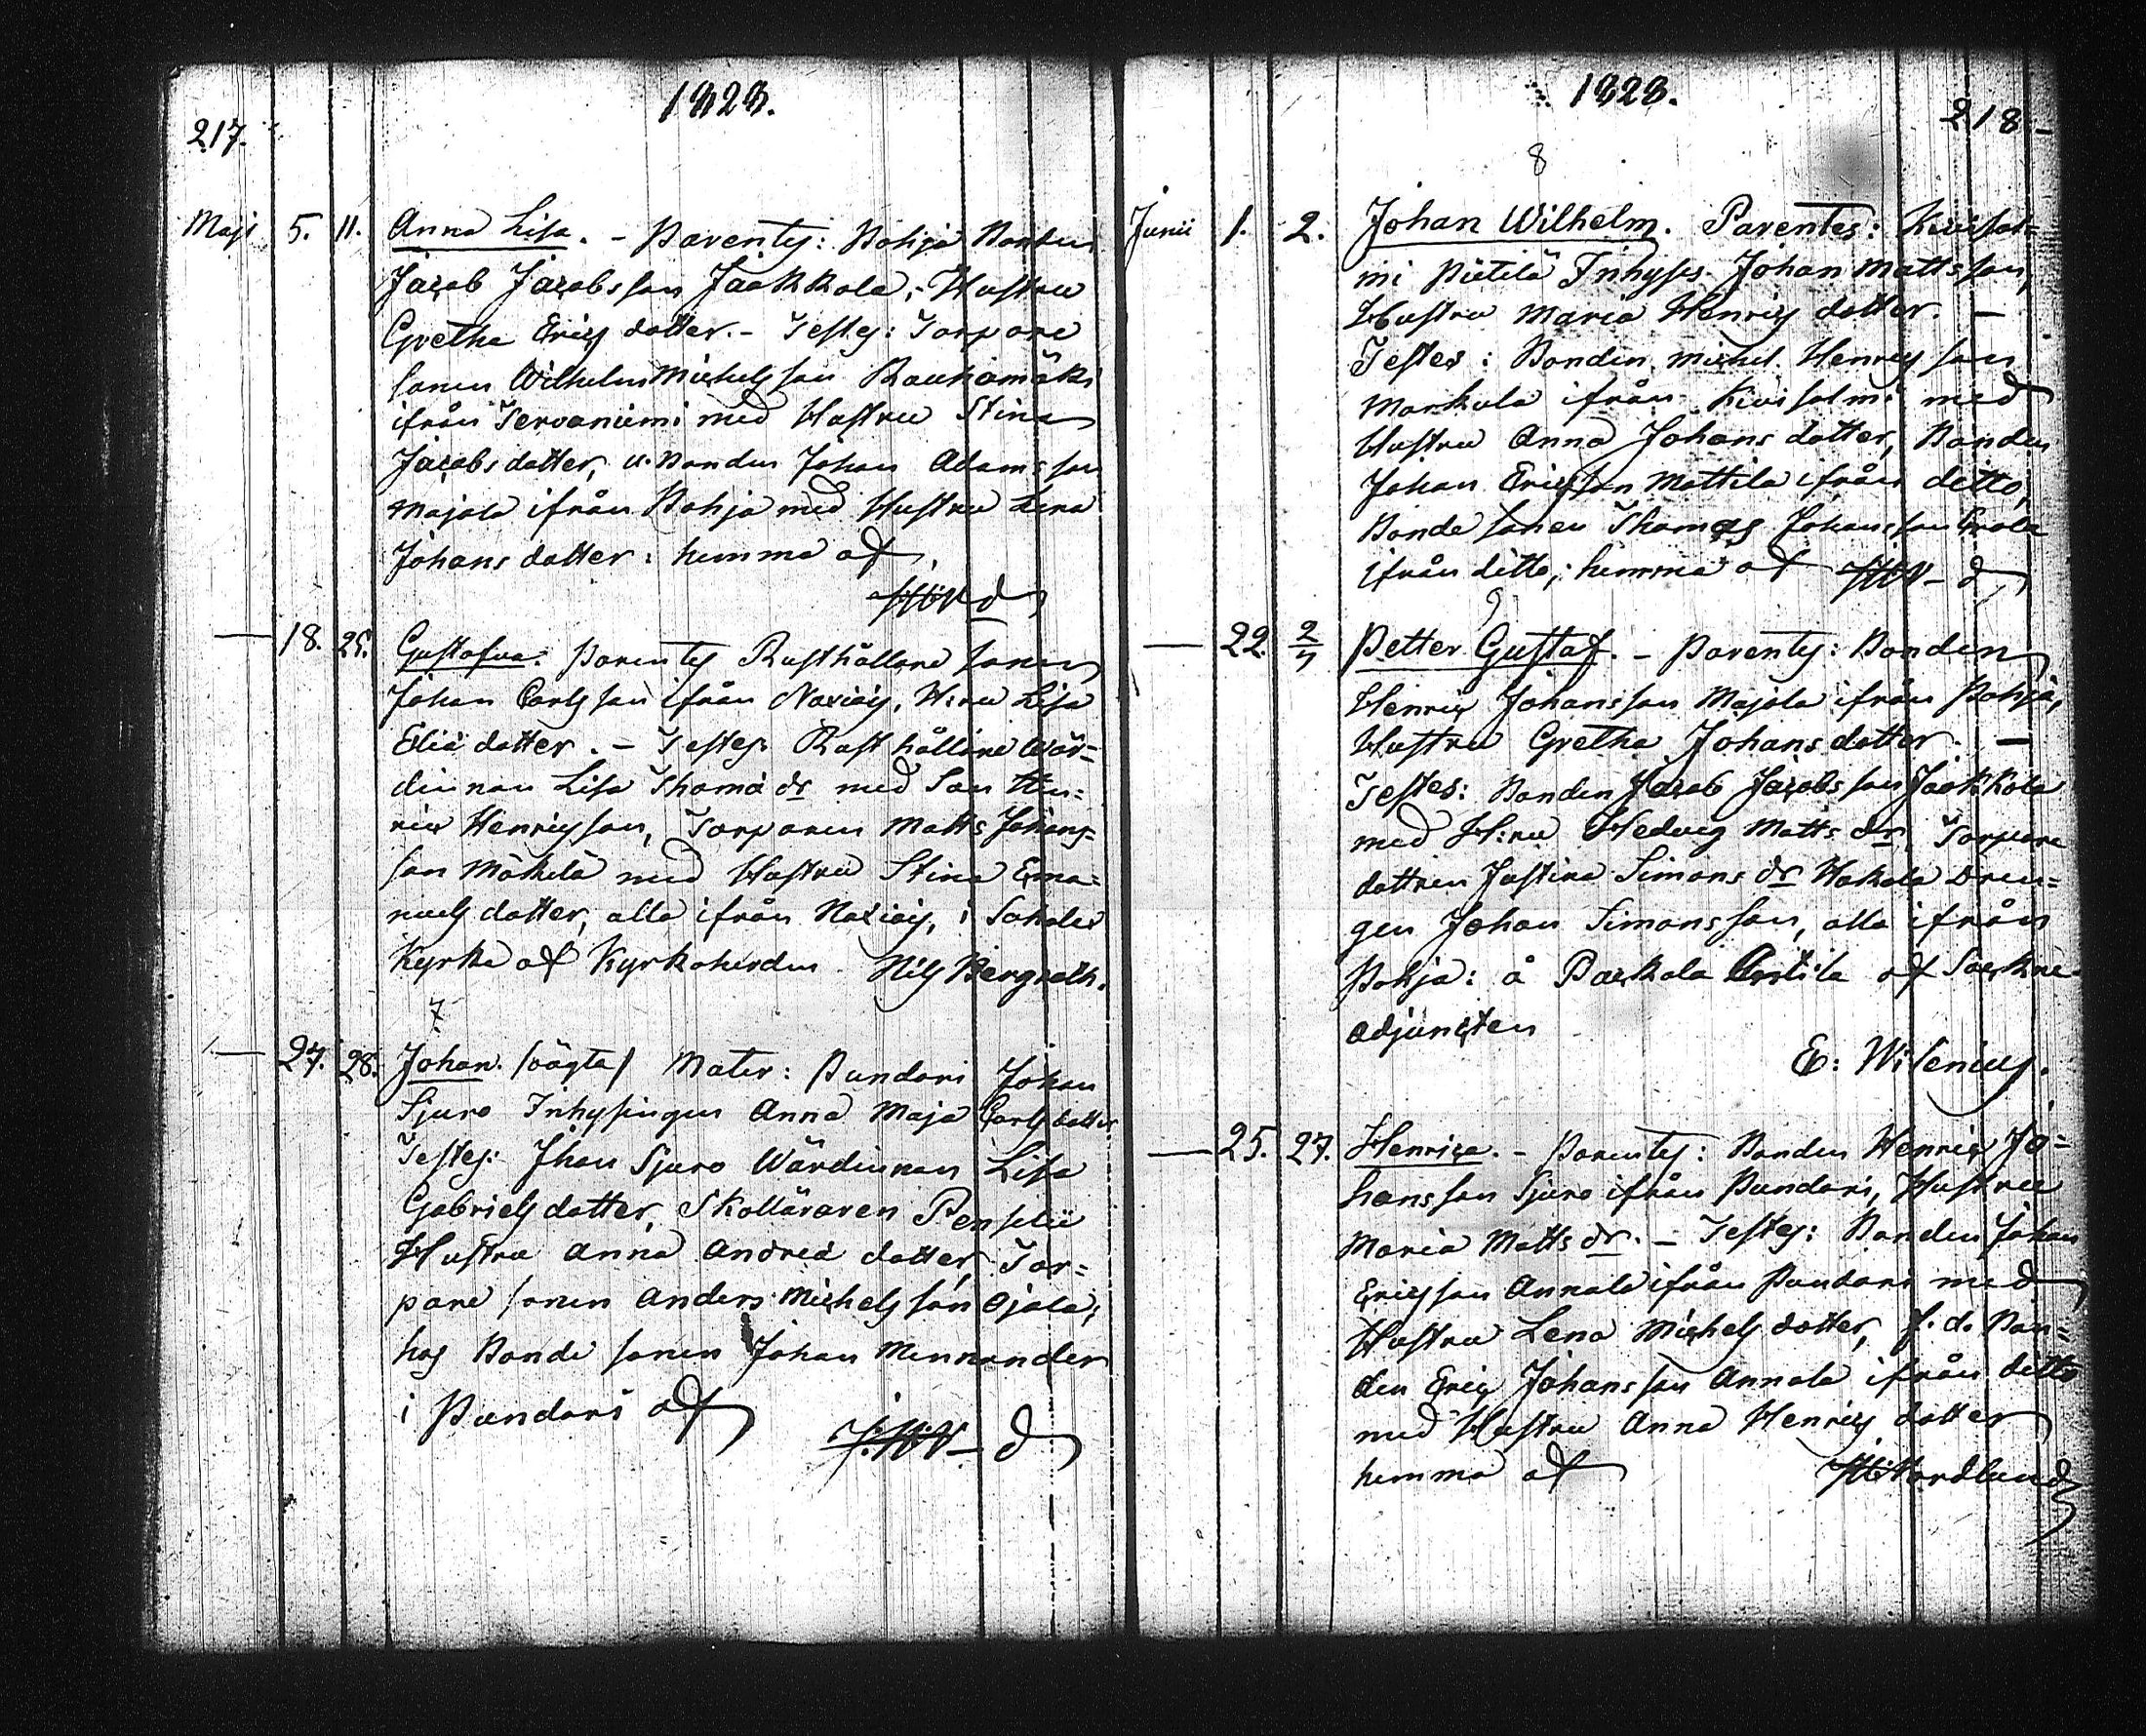 217.
1828.
Maji 5. 11. Anna Lisa. - Parentes: Pohja Bonden
Jacob Jacobsson Jaakkola, Hustru
Gretha Ericsdotter. - Testes: Torpare
sonen Wilhelm Michelsson Rauhamäki
ifrån Tervaniemi med Hustru Stina
Jacobsdotter, u. Bonden Johan Adamsson
Majala ifrån Pohja med Hustru Lena
Johansdotter: hemma af
— 18. 25. Gustafva. Parentes Rusthållare sonen
Johan Carlsson ifrån H:ru Lisa
Eliædotter. - Testes: Rusthållare Wär=
dinnan Lisa Thomædr med Son Hen=
ric Henricsson, Torparen Matts Johans=
son Mäkelä med Hustru Stina Ema=
nuelsdotter, alla ifrån i Sahalax
Kyrka af Kyrkoherden Nils Bergroth.
7
— 27. 28. Johan. /oägta/ Mater: Pundari Johan
Sjuro Inhysingen Anna Maja Carlsdotter
Testes: Jhan Sjuro Wärdinnan Lisa
Gabrielsdotter, Skolläraren
Hustru Anna Andreædotter, Tor=
pare sonen Anders Michelsson Ojala,
hos Bonde sonen Johan Mennander
i Pundari af
1828.
218
8
Junii 1. 2. Johan Wilhelm. Parentes: Kuisal=
mi Pietilä Inhyses Johan Mattsson,
Hustru Maria Henricsdotter. —
Testes: Bonden Michel Henricsson
Markula ifrån Kuisalmi med
Hustru Anna Johansdotter, Bonden
Johan Ericsson Mattila ifrån ditto,
Bonde sonen Thomas Johansson
ifrån ditto; hemma af
9
— 22. 2/7 Petter Gustaf. - Parentes: Bonden
Henric Johansson Majala ifrån Pohja,
Hustru Gretha Johansdotter. —
Testes: Bonden Jacob Jacobsson Jaakkola
med H:ru Hedvig Matts dr, Torpare
dottren Justina Simons dr Hakala Dren=
gen Johan Simonsson, alla ifrån
Pohja: å Packala Anttila af Sockne
adjuncten
E: Wisenius.
— 25. 27. Henrica. - Parentes: Bonden Henric Jo=
hansson Sjuro ifrån Pundari, Hustru
Maria Matts dr. - Testes: Bonden Johan
Ericsson Annala ifrån Pundari med
Hustru Lena Michelsdotter, f. d. Bon=
den Eric Johansson Annala ifrån ditto
med Hustru Anna Henricsdotter
hemma af Nordlund